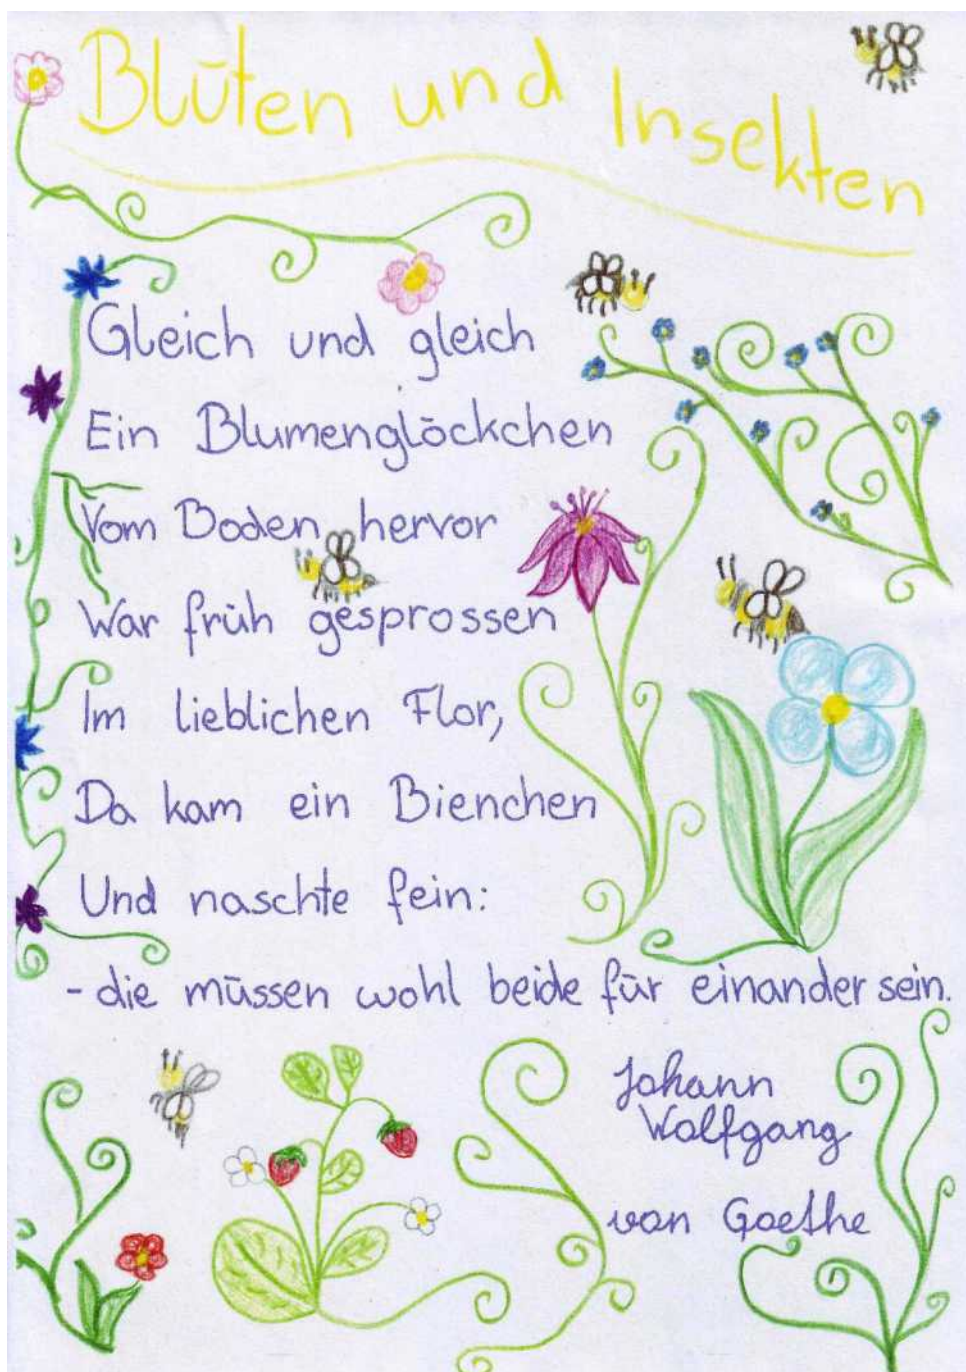 Blüten und Insekten
Gleich und gleich
Ein Blumenglöckchen
Vom Boden hervor
War früh gesprossen
Im lieblichen Flor,
Da kam ein Bienchen
Und naschte fein:
- die müssen wohl beide für einander sein.
Johann
Wolfgang
von Goethe